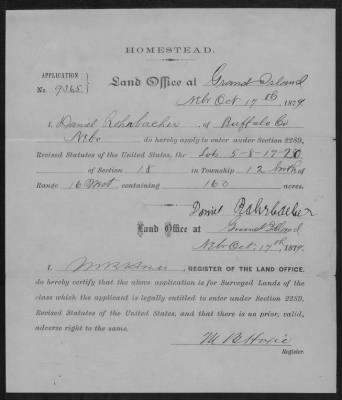 HOMESTEAD.
APPLICATION
No. 9365
Land Office at Grand Island
Nebr Oct 17th 1879
I, Daniel Rohrbacher, of Buffalo Co
Nebr do hereby apply to enter under Section 2289,
Revised Statutes of the United States, the Lots 5-8-17-20
of Section 18 in Township 12 North of
Range 16 West containing 160 acres.
Daniel Rohrbacher
Land Office at Grand Island
Nebr Oct. 17th, 1879.
I, M B Hoxie, REGISTER OF THE LAND OFFICE,
do hereby certify that the above application is for Surveyed Lands of the
class which the applicant is legally entitled to enter under Section 2289,
Revised Statutes of the United States, and that there is no prior, valid,
adverse right to the same.
M B Hoxie
Register.